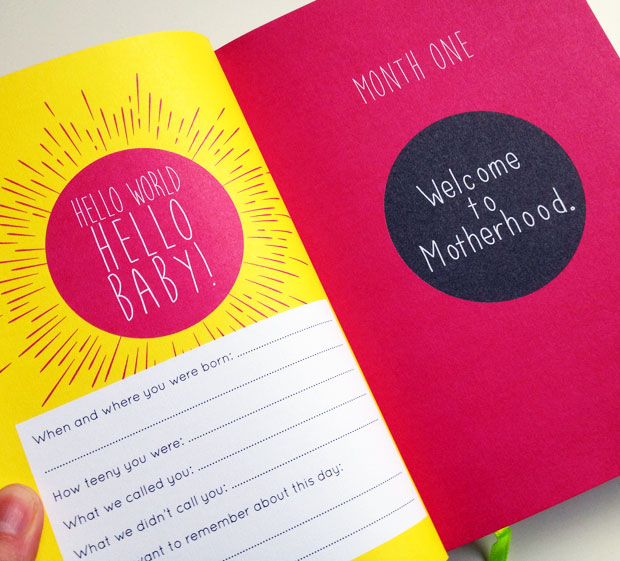 HELLO WORLD
HELLO
BABY!
When and where you were born:
How teeny you were:
What we called you:
What we didn't call you:
to remember about this day:
MONTH ONE
Welcome
to
Motherhood.